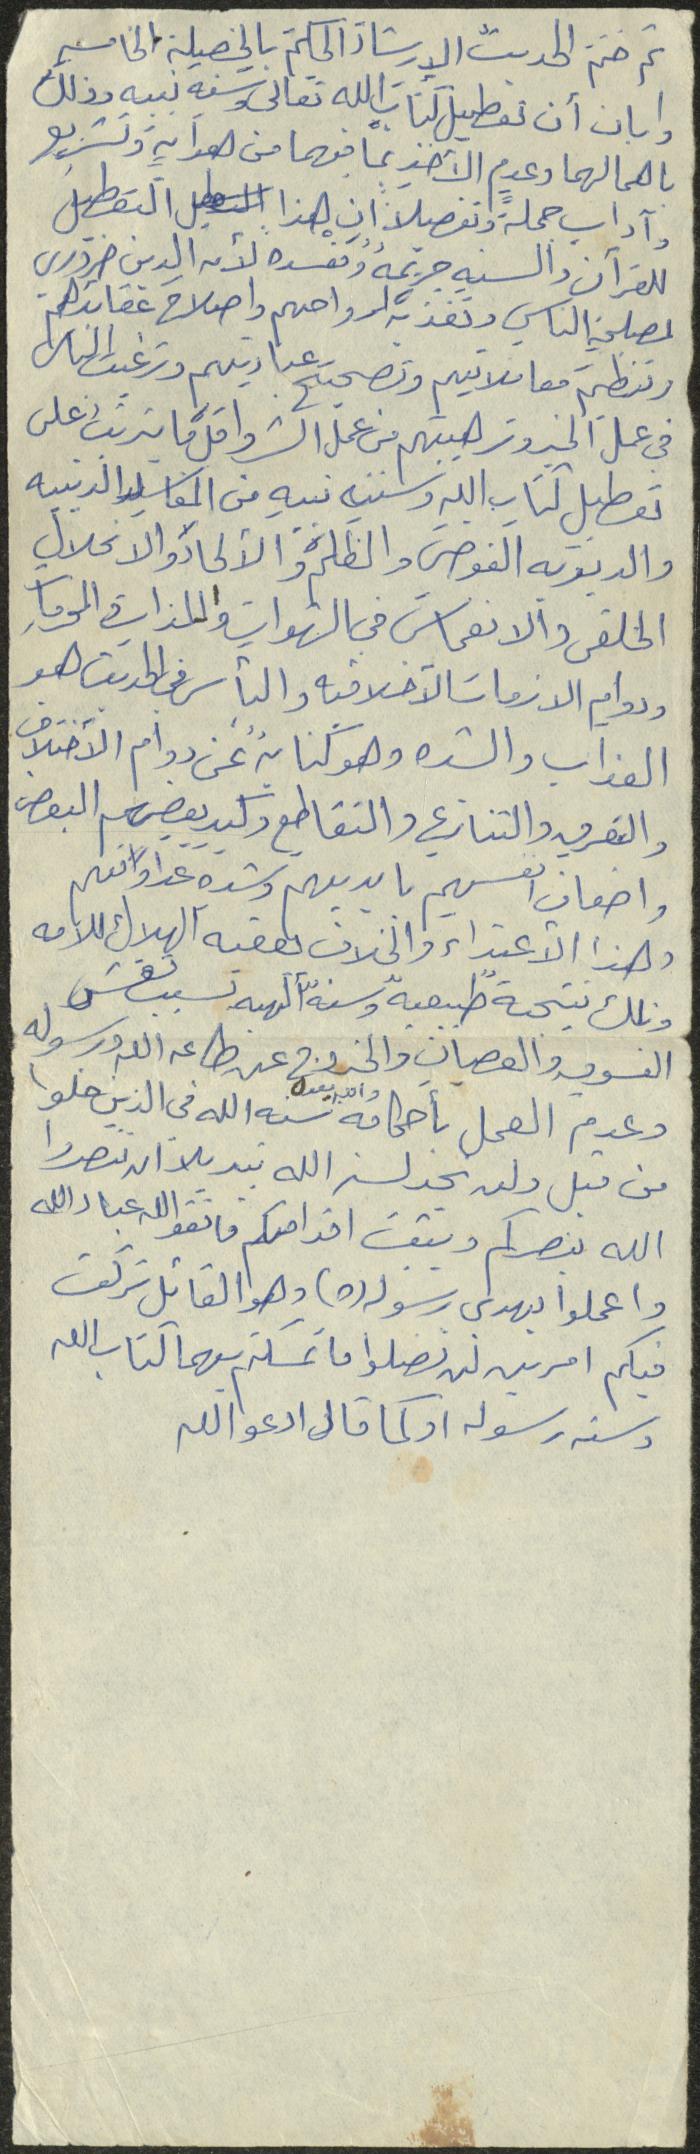 ثم ختم الحديث الإرشاد الحكيم بالخصيلة الخامسه
وابان أن تعطيل كتاب الله تعالى وسنة نبيه وذلك
باهمالهما وعدم الأخذ بما فيهما من هداية وتشريع
وآداب جملةً وتفصيلاً ان هذا التعطيل
للقرآن والسنه جريمةٌ ومفسده لأن الدين ضروري
لمصلحة الناس وتغذية ارواحهم واصلاح عقائدهم
وتنظيم معاملاتهم وتصحيح عباداتهم وترغيب الناس
في عمل الخير وترهيبهم من عمل الشر واقل ما يترتب على
تعطيل كتاب الله وسنة نبيه من المفاسد الدينيه
والدنيويه الفوضى والظلم والألحاد والانحلال
الخلقي والانغماس في الشهوات والملذات المحرمات
ودوام الازمات الاخلاقيه والبأس في الحديث هو
العذاب والشده وهو كنايةٌ عن دوام الأختلاف
والتفرق والتنازع والتقاطع وكيد بعضهم البعض
واضعاف انفسهم بايديهم وشدة عداواتهم
وهذا الأعتداء والخلاف يعقبه الهلاك للامه
وتلك نتيجة طبيعيةٌ وسنةٌ الهيه تسبب تفشى
الفسوق والعصيان والخروج عن طاعه الله ورسوله
وعدم العمل بأحكامه والله يقول سنه الله فى الذين خلوا
من قبل ولن تجد لسنه الله تبديلا ان تنصروا
الله ينصركم ويثبت اقدامكم فاتقو الله عباد الله
واعملوا بهدى رسوله (ص) وهو القائل تركت
فيكم امرين لن تضلوا ما تمسكتم بهما كتاب الله
وسنه رسوله او كما قال ادعو الله